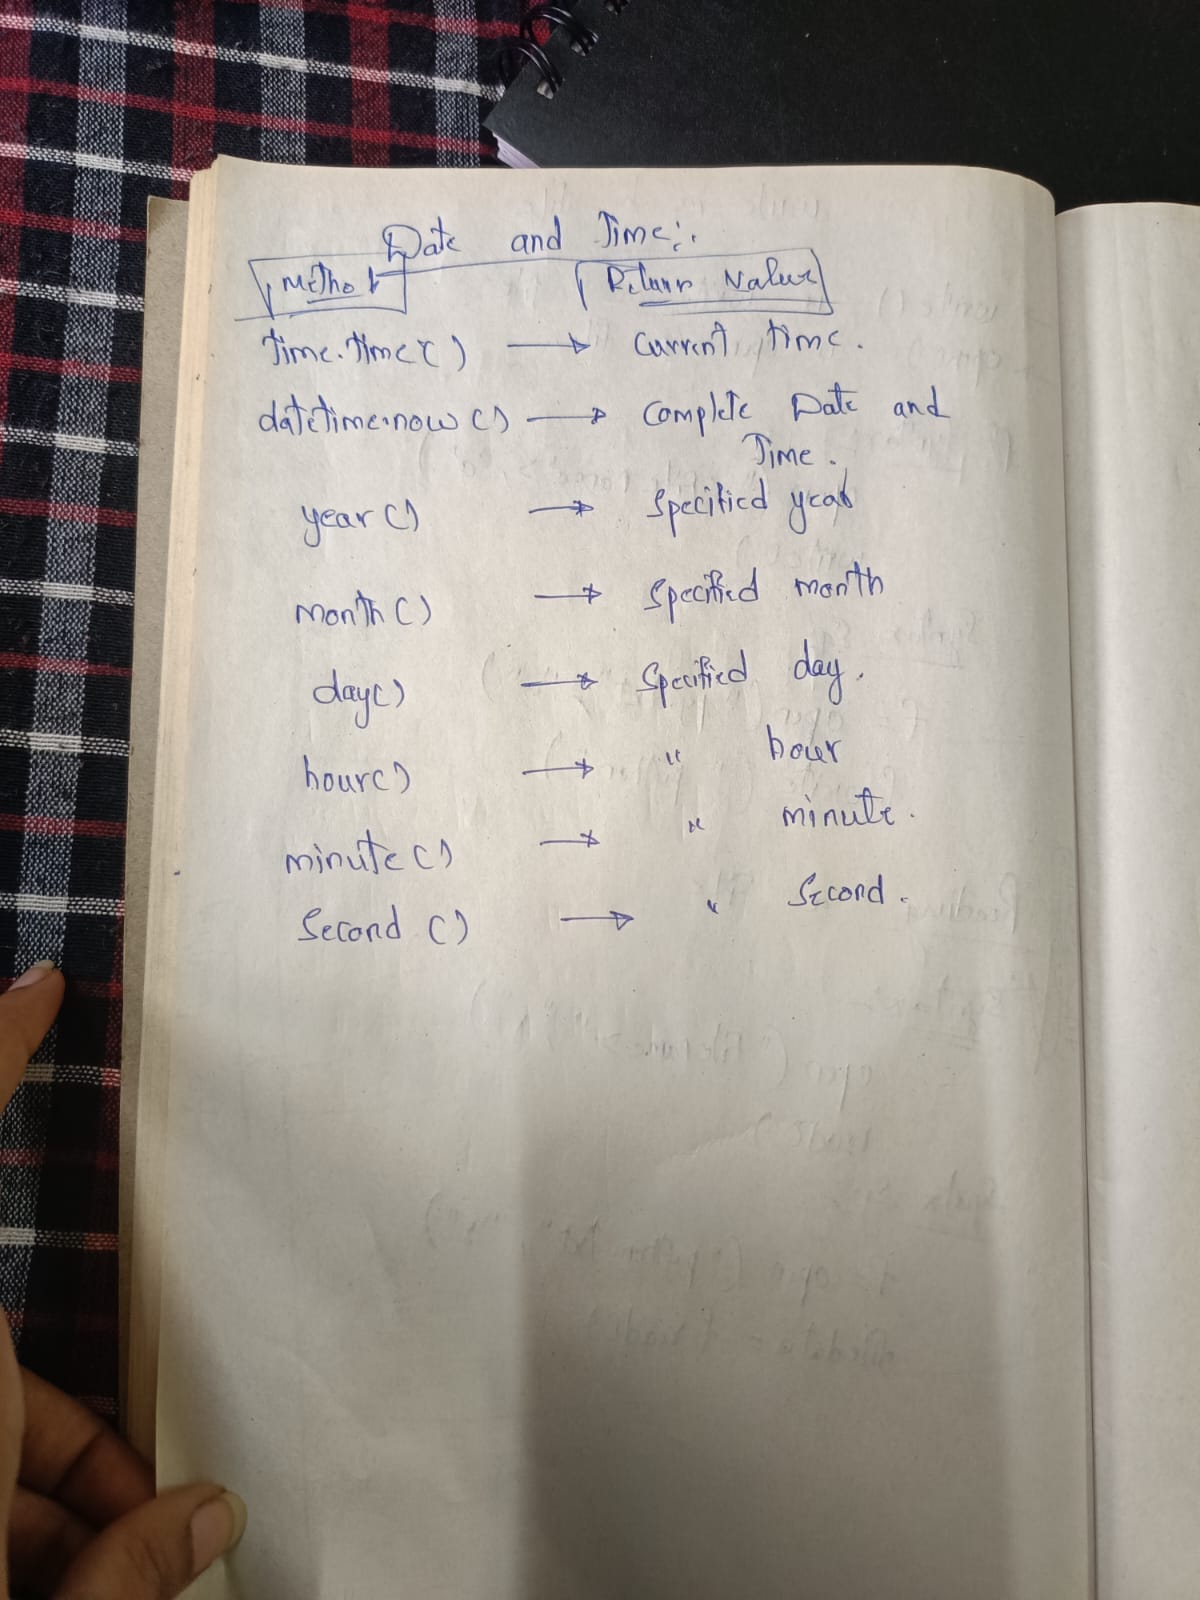 Date and Time:-
Method Return Value
Time.Time() → Current time.
datetime.now() → Complete Date and
Time.
year() → Specified year
Month() → Specified month
day() → Specified day.
hour() → " hour
minute() → " minute.
Second () → " Second.